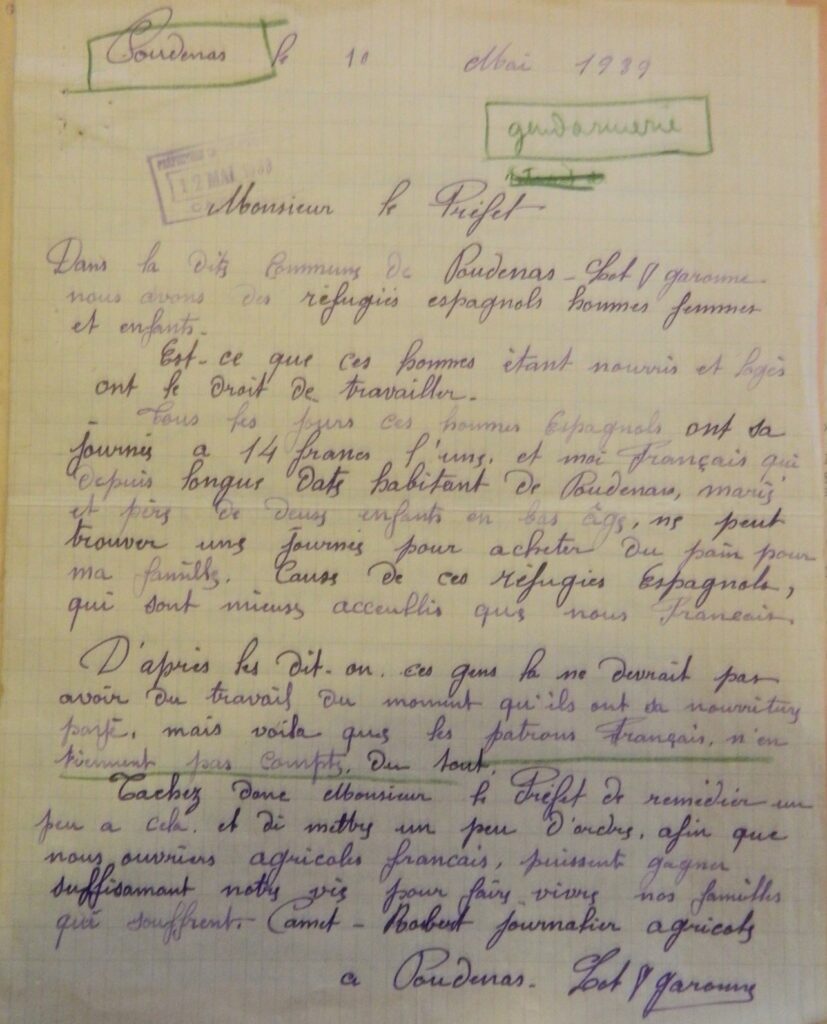 Poudenas le 10 Mai 1939
gendarmerie
12 MAI
Monsieur le Préfet
Dans la dite commune de Poudenas - Lot & garonne.
nous avons des réfugiés espagnols hommes femmes
et enfants.
Est-ce que ces hommes étant nourris et logés
ont le droit de travailler.
Tous les jours ces hommes Espagnols ont sa
journés a 14 francs l'une, et moi Français qui
depuis longue date habitant de Poudenas, marié
et père de deux enfants en bas âge, ne peut
trouver une journés pour acheter du pain pour
ma famille. Cause de ces réfugiés Espagnols,
qui sont mieux acceullis que nous Français.
D'après les dit-on, ces gens la ne devrait pas
avoir du travail du moment qu'ils ont sa nourriture
payé, mais voila que les patrons Français, n'en
tiennent pas compte, du tout.
Tachez donc Monsieur le Préfet de remédier un
peu a cela, et di mettre un peu d'ordre, afin que
nous ouvriers agricoles français, puissent gagner
suffisamant notre vie pour faire vivre nos familles
qui souffrent. Camet - Robert journalier agricole
a Poudenas. Lot & garonne